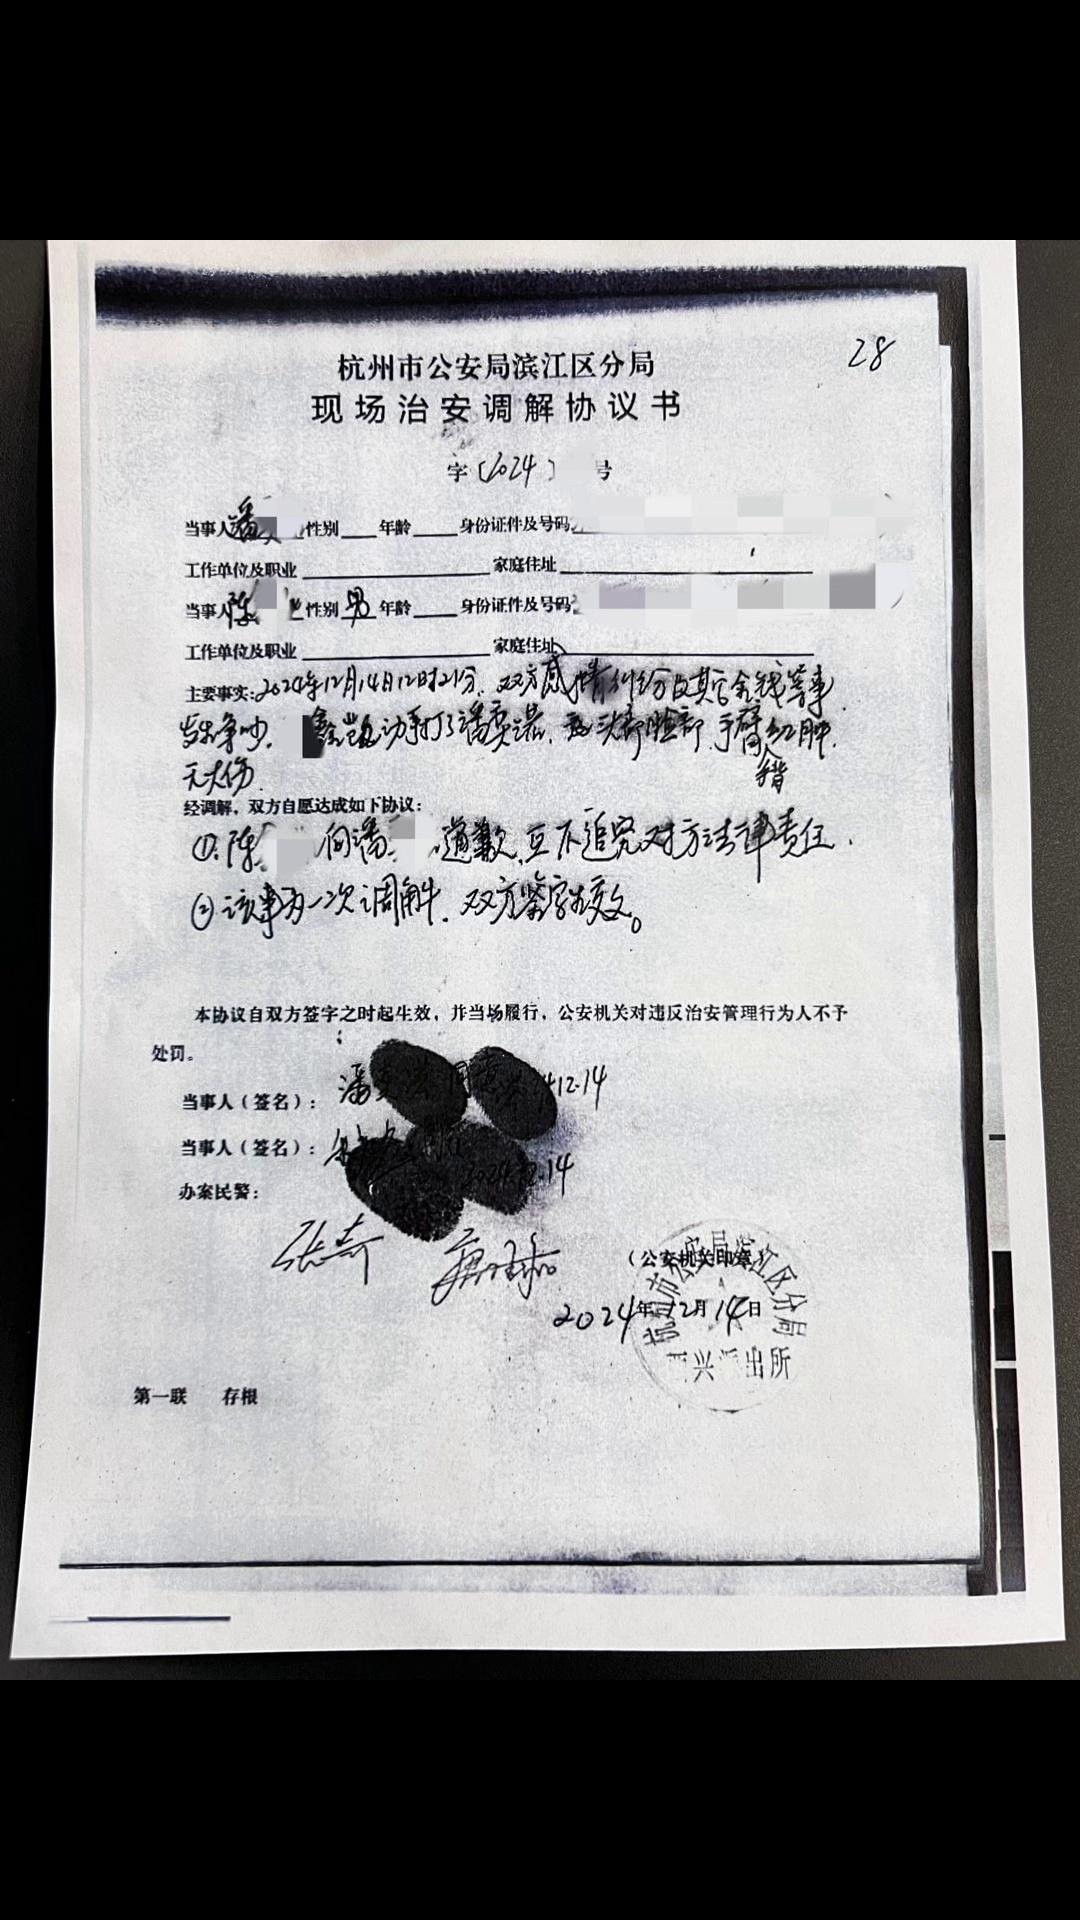 28
杭州市公安局滨江区分局
现场治安调解协议书
字〔2024〕 号
当事人潘 性别 年龄 身份证件及号码
工作单位及职业 家庭住址
当事人陈 性别 男 年龄 身份证件及号码
工作单位及职业 家庭住址
主要事实:2024年12月14日12时21分,双方感情纠纷及其它金钱等事
发生争吵, 动手打了潘 头部脸部,手臂红肿,
无大伤.
经调解,双方自愿达成如下协议:
①.陈 向潘 道歉,互不追究对方法律责任.
②该事为一次调解,双方签字生效。
本协议自双方签字之时起生效,并当场履行,公安机关对违反治安管理行为人不予
处罚。
当事人(签名): 潘 12.14
当事人(签名): 2024.12.14
办案民警:
张奇
(公安机关印章)
2024年12月14日
杭州市公安局滨江区分局
兴 出所
第一联 存根